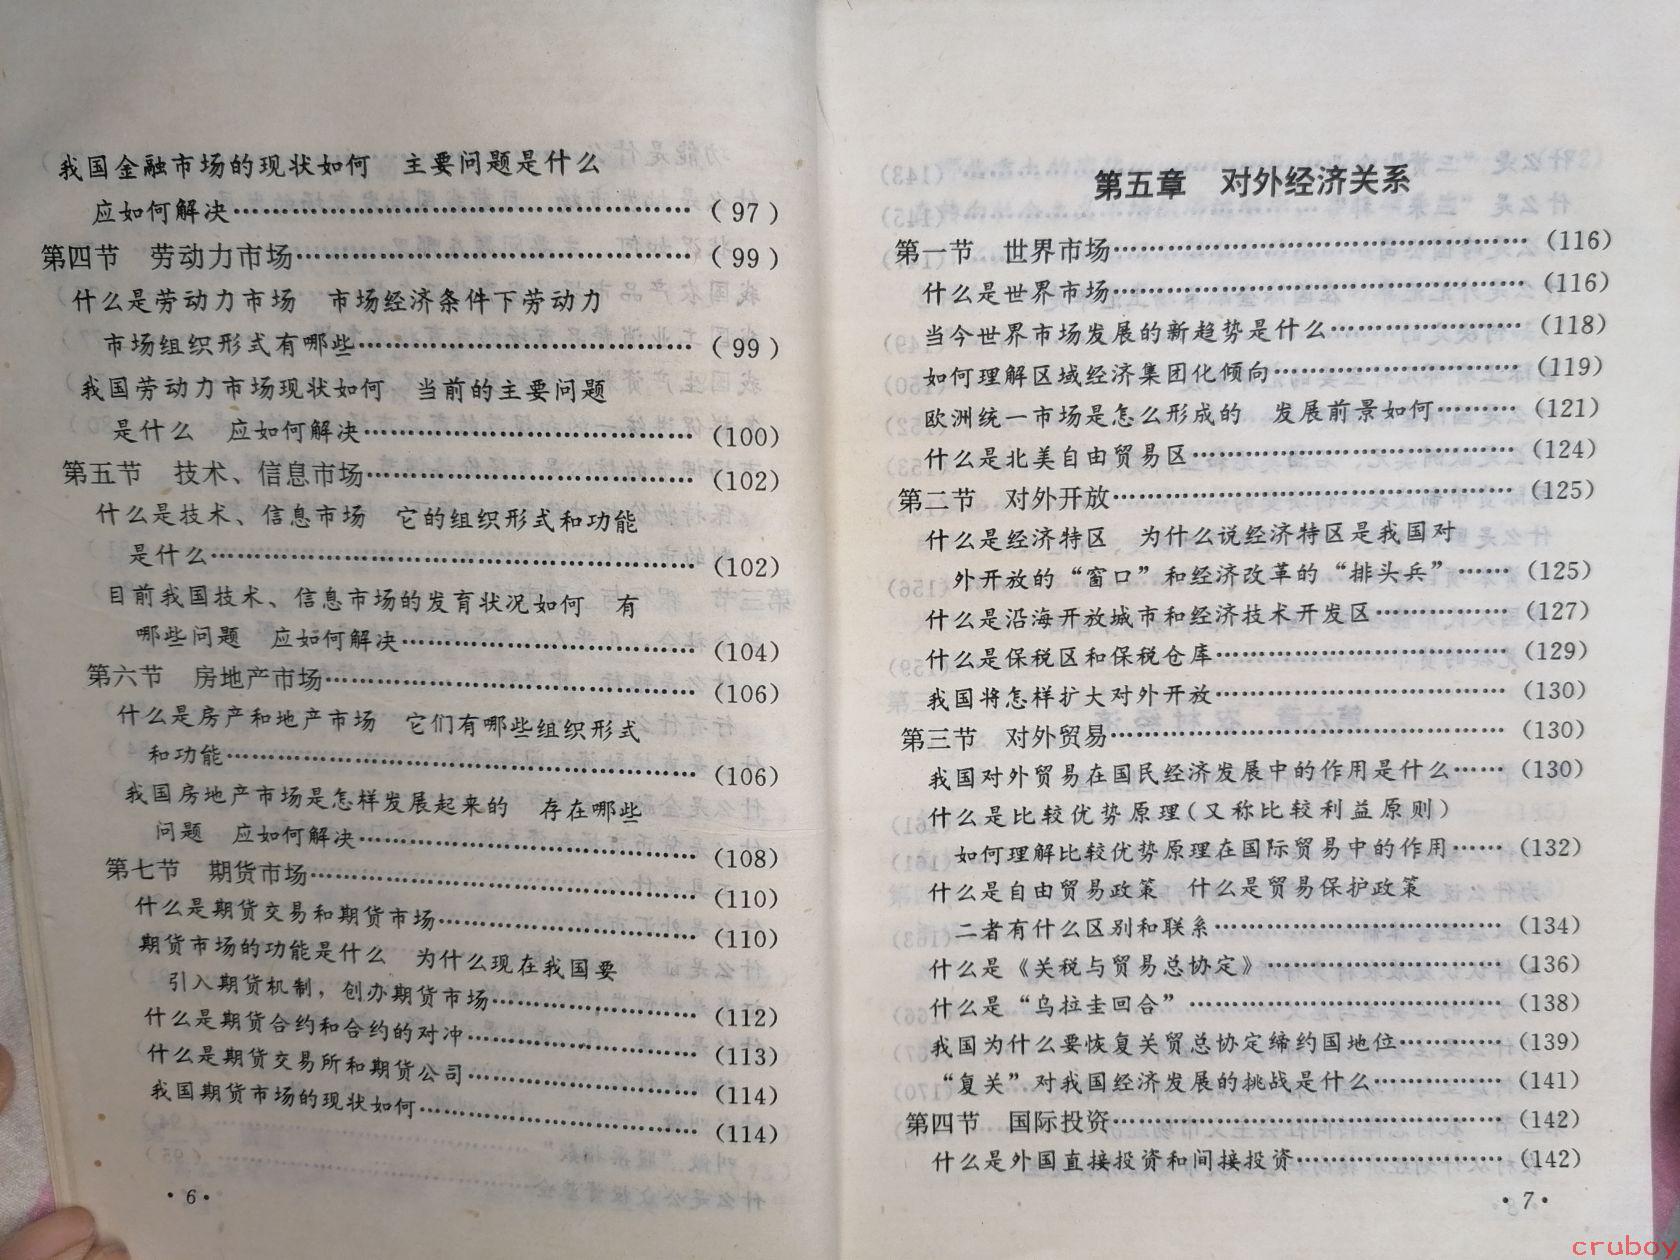 我国金融市场的现状如何　主要问题是什么
应如何解决……………………………………………（97）
第四节　劳动力市场……………………………………（99）
什么是劳动力市场　市场经济条件下劳动力
市场组织形式有哪些………………………………（99）
我国劳动力市场现状如何　当前的主要问题
是什么　应如何解决………………………………（100）
第五节　技术、信息市场………………………………（102）
什么是技术、信息市场　它的组织形式和功能
是什么………………………………………………（102）
目前我国技术、信息市场的发育状况如何　有
哪些问题　应如何解决……………………………（104）
第六节　房地产市场……………………………………（106）
什么是房产和地产市场　它们有哪些组织形式
和功能………………………………………………（106）
我国房地产市场是怎样发展起来的　存在哪些
问题　应如何解决…………………………………（108）
第七节　期货市场………………………………………（110）
什么是期货交易和期货市场………………………（110）
期货市场的功能是什么　为什么现在我国要
引入期货机制，创办期货市场……………………（112）
什么是期货合约和合约的对冲……………………（113）
什么是期货交易所和期货公司……………………（114）
我国期货市场的现状如何…………………………（114）
·6·
第五章　对外经济关系
第一节　世界市场………………………………………（116）
什么是世界市场……………………………………（116）
当今世界市场发展的新趋势是什么………………（118）
如何理解区域经济集团化倾向……………………（119）
欧洲统一市场是怎么形成的　发展前景如何………（121）
什么是北美自由贸易区……………………………（124）
第二节　对外开放………………………………………（125）
什么是经济特区　为什么说经济特区是我国对
外开放的“窗口”和经济改革的“排头兵”……（125）
什么是沿海开放城市和经济技术开发区…………（127）
什么是保税区和保税仓库…………………………（129）
我国将怎样扩大对外开放…………………………（130）
第三节　对外贸易………………………………………（130）
我国对外贸易在国民经济发展中的作用是什么……（130）
什么是比较优势原理（又称比较利益原则）
如何理解比较优势原理在国际贸易中的作用……（132）
什么是自由贸易政策　什么是贸易保护政策
二者有什么区别和联系……………………………（134）
什么是《关税与贸易总协定》……………………（136）
什么是“乌拉圭回合”……………………………（138）
我国为什么要恢复关贸总协定缔约国地位…………（139）
“复关”对我国经济发展的挑战是什么……………（141）
第四节　国际投资………………………………………（142）
什么是外国直接投资和间接投资…………………（142）
·7·
cruboy